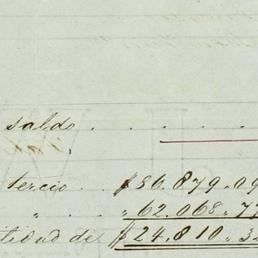 saldo . . . . . .
tercio . . $86.879.09
" . . " 62.068.77
tidad de $24.810.32